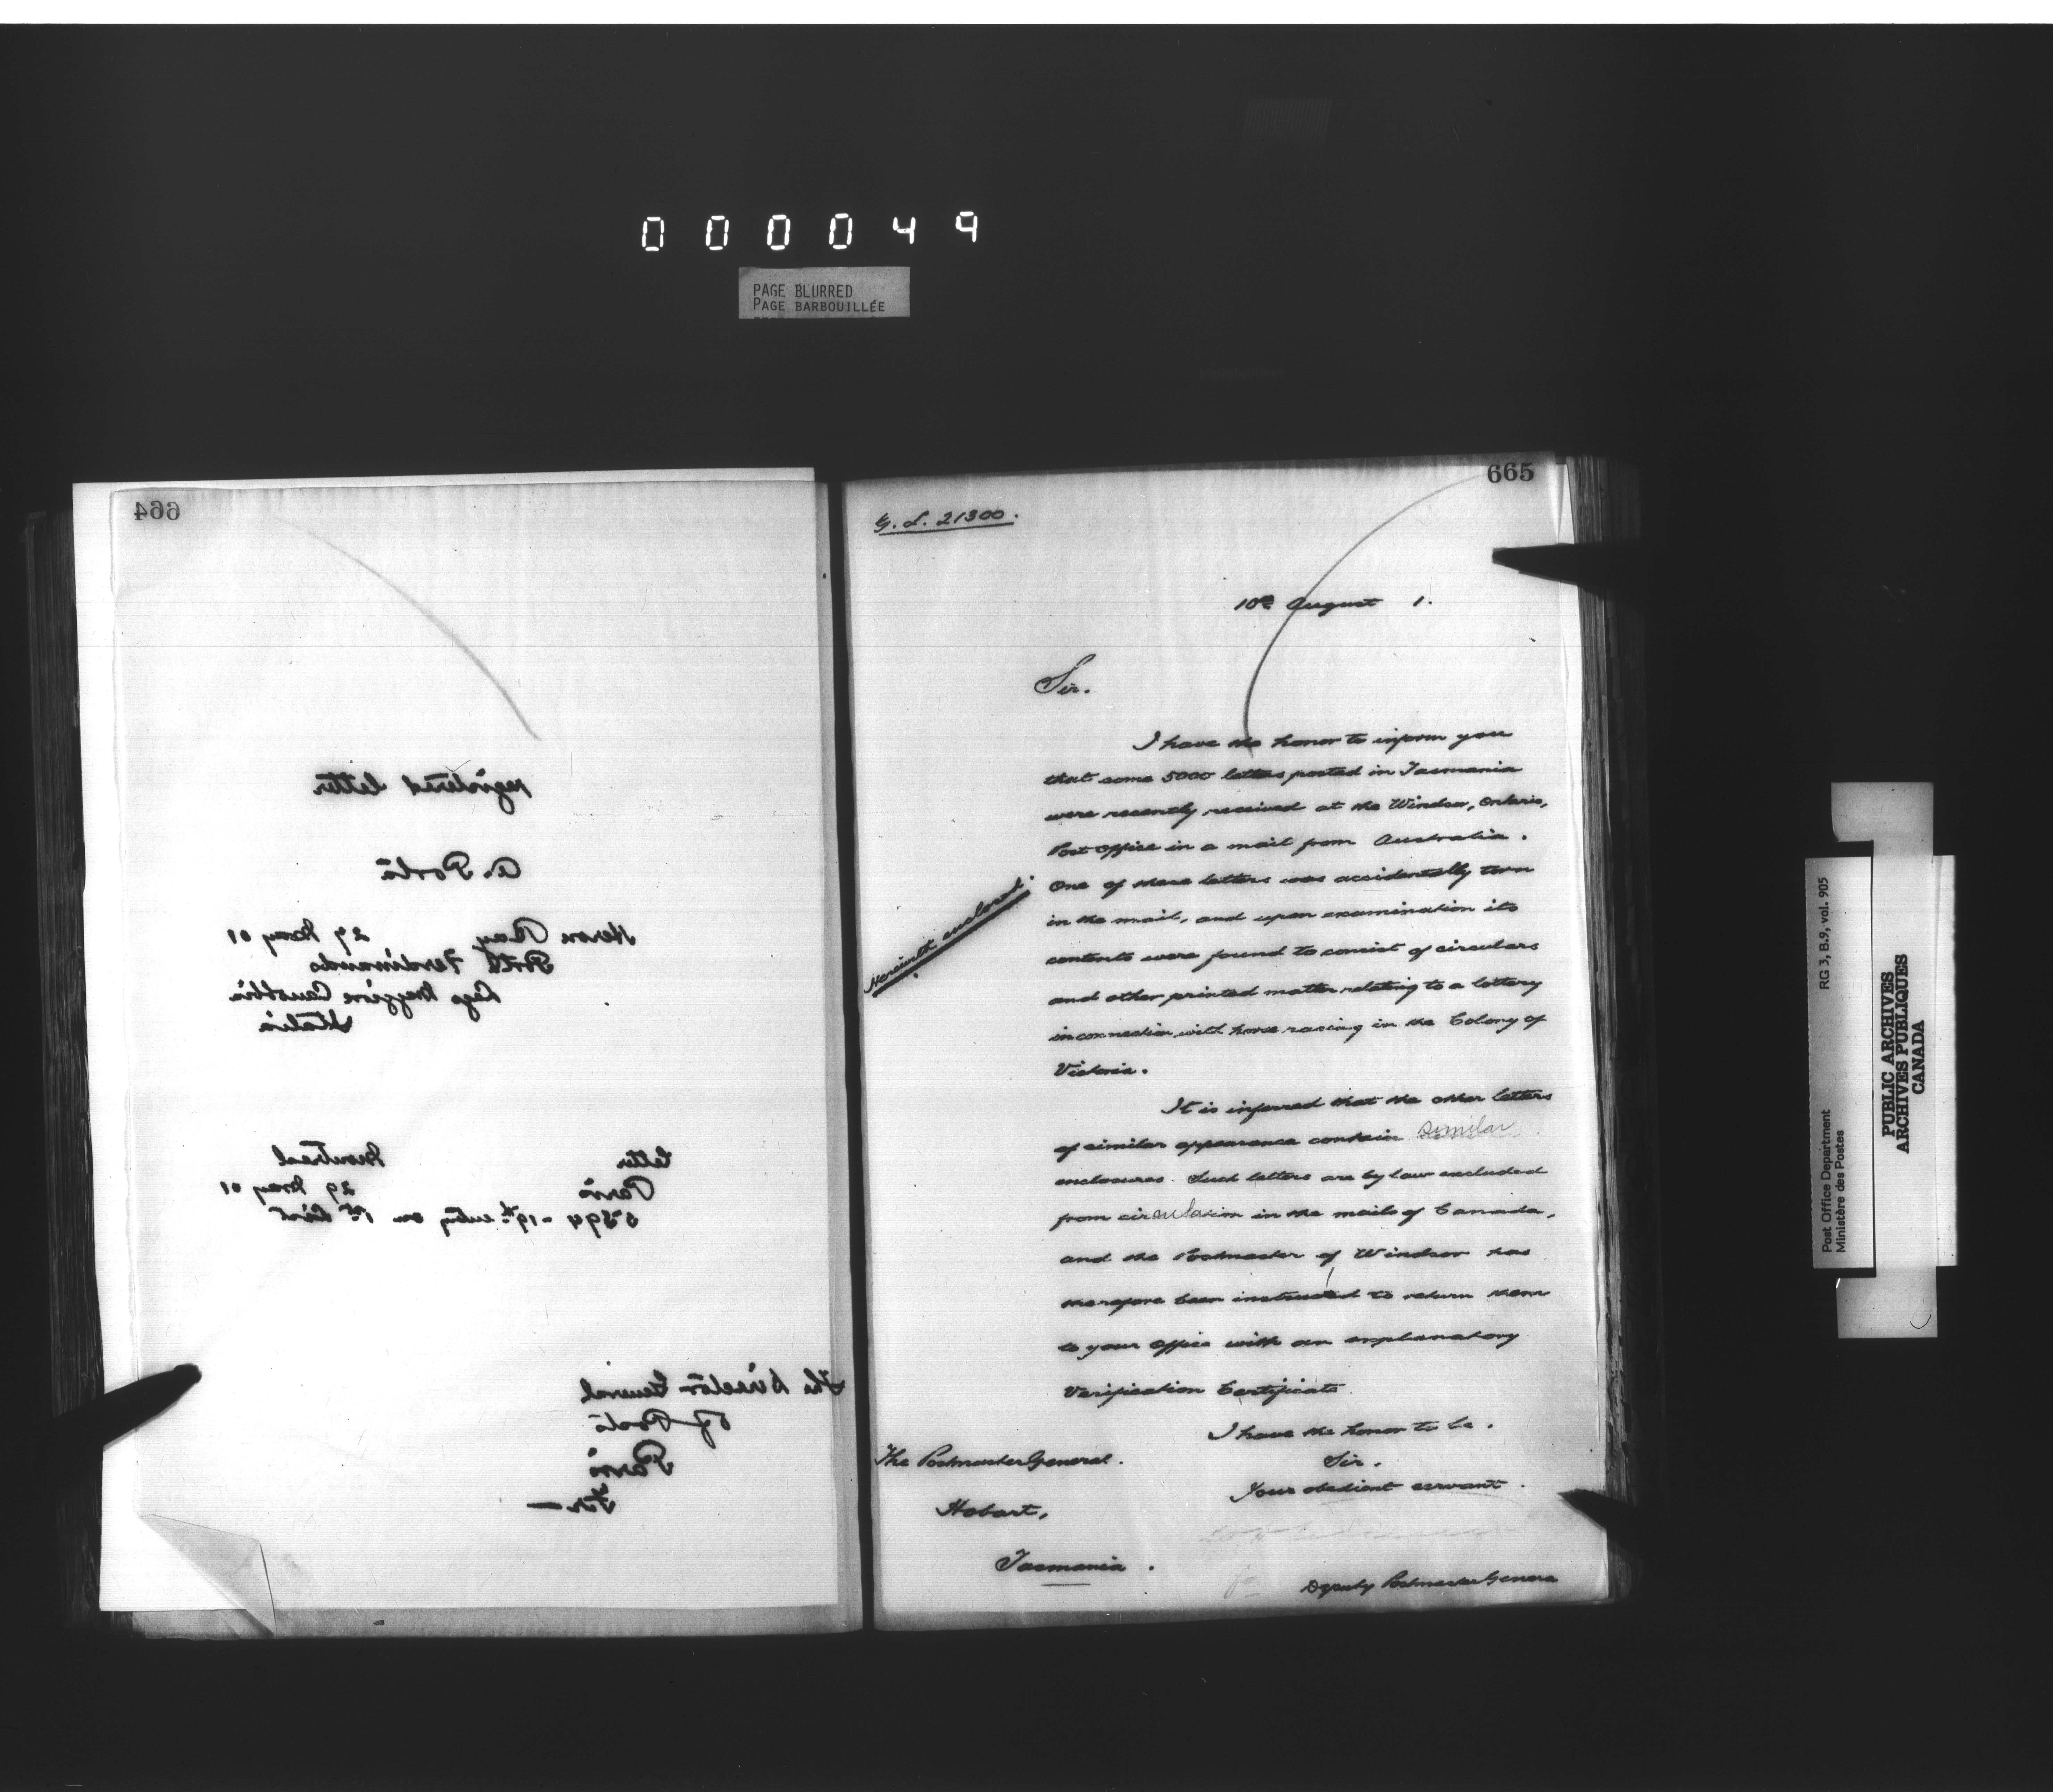 000049
PAGE BLURRED
PAGE BARBOUILLÉE
664
registered letter
A. Porta
Heron Bay 29 May 01
Porta Ferdinando
Italia
letter Montreal
Paris 29 May 01
5894 - 19th entry on 1st List
The Director General
of Posts
Paris
Fr—
665
G. L. 21300.
10th August 1.
Sir.
I have the honor to inform you
that some 5000 letters posted in Tasmania
were recently received at the Windsor, Ontario,
Post Office in a mail from Australia.
One of these letters was accidentally torn
in the mail, and upon examination its
contents were found to consist of circulars
and other printed matter relating to a lottery
in connection with horse racing in the Colony of
Victoria.
Herewith enclosed.
It is inferred that the other letters
of similar appearance contain similar
enclosures. Such letters are by law excluded
from circulation in the mails of Canada,
and the Postmaster of Windsor has
therefore been instructed to return them
to your Office with an explanatory
Verification Certificate.
I have the honor to be.
Sir.
Your obedient servant.
The Postmaster General.
Hobart,
Tasmania.
Deputy Postmaster Genera
Post Office Department RG 3, B.9, vol. 905
Ministère des Postes
PUBLIC ARCHIVES
ARCHIVES PUBLIQUES
CANADA